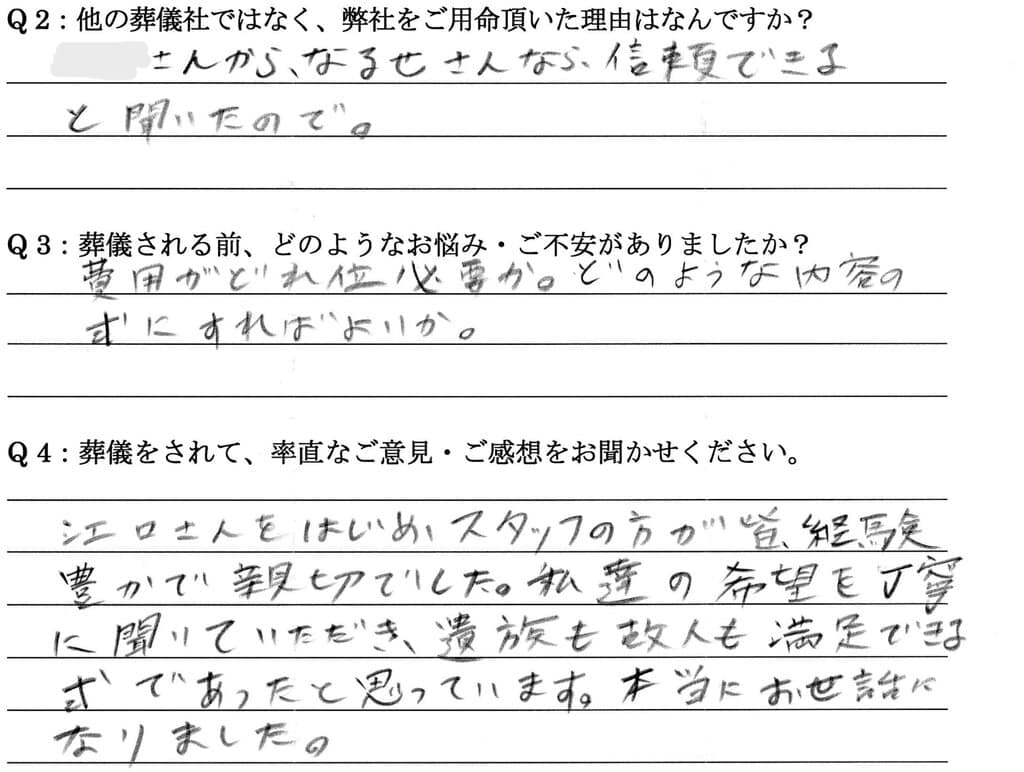 Q2：他の葬儀社ではなく、弊社をご用命頂いた理由はなんですか？
さんから、なるせさんなら、信頼できる
と聞いたので。
Q3：葬儀される前、どのようなお悩み・ご不安がありましたか？
費用がどれ位必要か。どのような内容の
式にすればよいか。
Q4：葬儀をされて、率直なご意見・ご感想をお聞かせください。
江口さんをはじめ、スタッフの方が皆、経験
豊かで親切でした。私達の希望を丁寧
に聞いていただき、遺族も故人も満足できる
式であったと思っています。本当にお世話に
なりました。